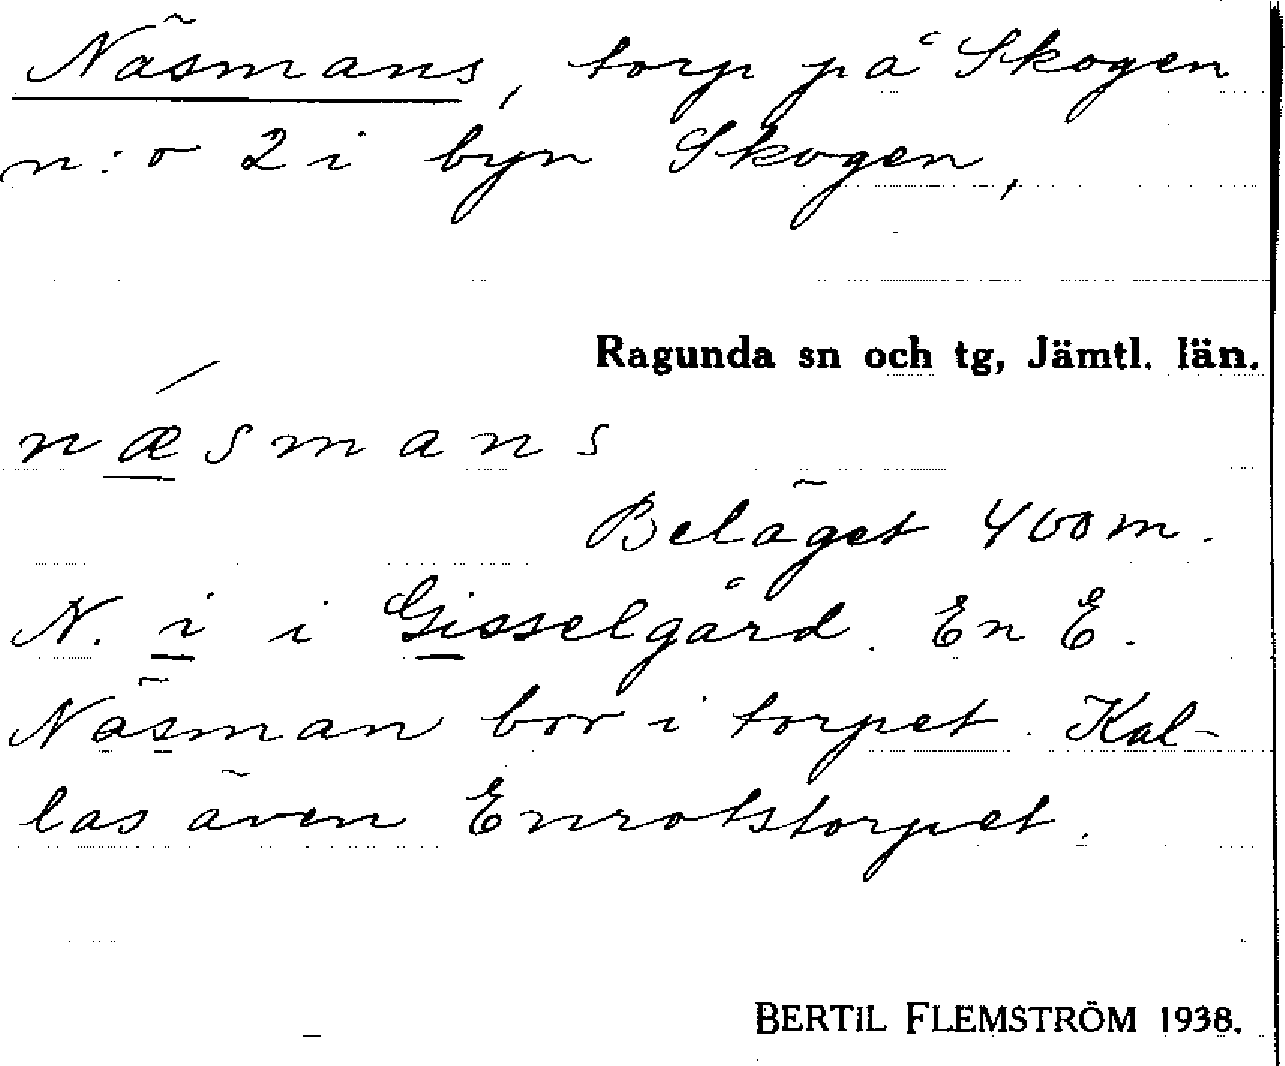 Näsmans, torp på Skogen
n:o 2 i byn Skogen,
Ragunda sn och tg, Jämtl. län.
næ´smans
Beläget 400 m.
N. i i Gisselgård. En E.
Näsman bor i torpet. Kal-
las även Enrotstorpet.
BERTIL FLEMSTRÖM 1938.